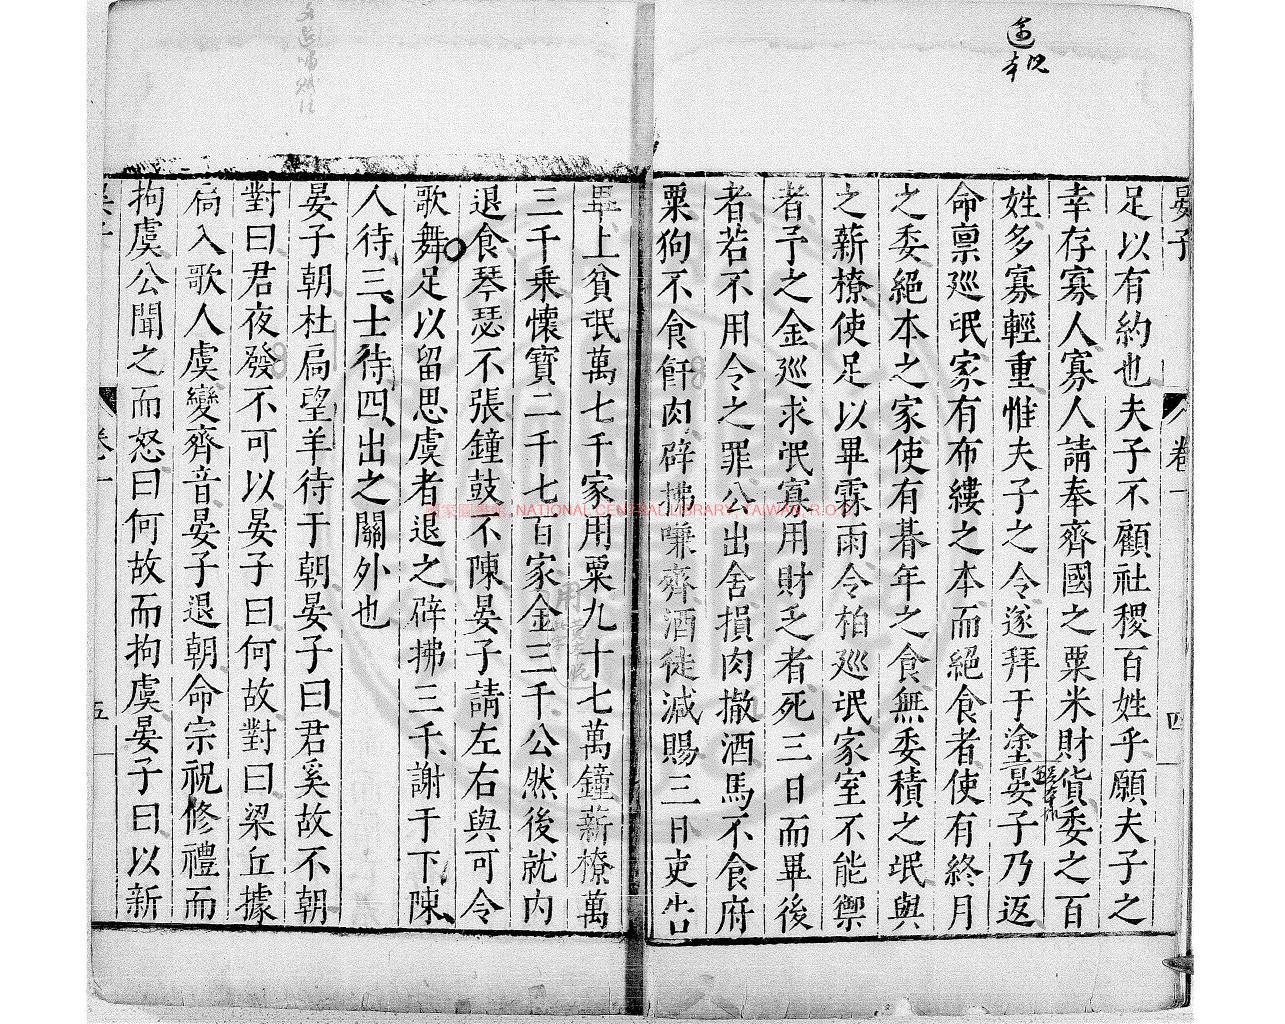 晏子
卷一
四
足以有約也夫子不顧社稷百姓乎願夫子之
幸存寡人寡人請奉齊國之粟米財貨委之百
姓多寡輕重惟夫子之令遂拜于塗晏子乃返
命稟巡氓家有布縷之本而絕食者使有終月
之委絕本之家使有朞年之食無委積之氓與
之薪橑使足以畢霖雨令柏巡氓家室不能禦
者予之金巡求氓寡用財乏者死三日而畢後
者若不用令之罪公出舍損肉撤酒馬不食府
粟狗不食飦肉辟拂嗛齊酒徒減賜三日吏告
畢上貧氓萬七千家用粟九十七萬鐘薪橑萬
三千乘懷寶二千七百家金三千公然後就內
退食琴瑟不張鐘鼓不陳晏子請左右與可令
歌舞足以留思虞者退之辟拂三千謝于下陳
人待三士待四出之關外也
晏子朝杜扃望羊待于朝晏子曰君奚故不朝
對曰君夜發不可以晏子曰何故對曰梁丘據
扃入歌人虞變齊音晏子退朝命宗祝修禮而
拘虞公聞之而怒曰何故而拘虞晏子曰以新
卷一
五
國家圖書館 NATIONAL CENTRAL LIBRARY, TAIWAN, R.O.C.